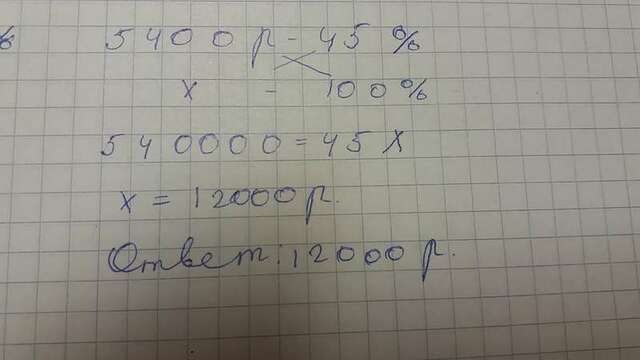 %
5400 р - 45 %
х - 100 %
540000 = 45 х
х = 12000 р.
Ответ: 12000 р.